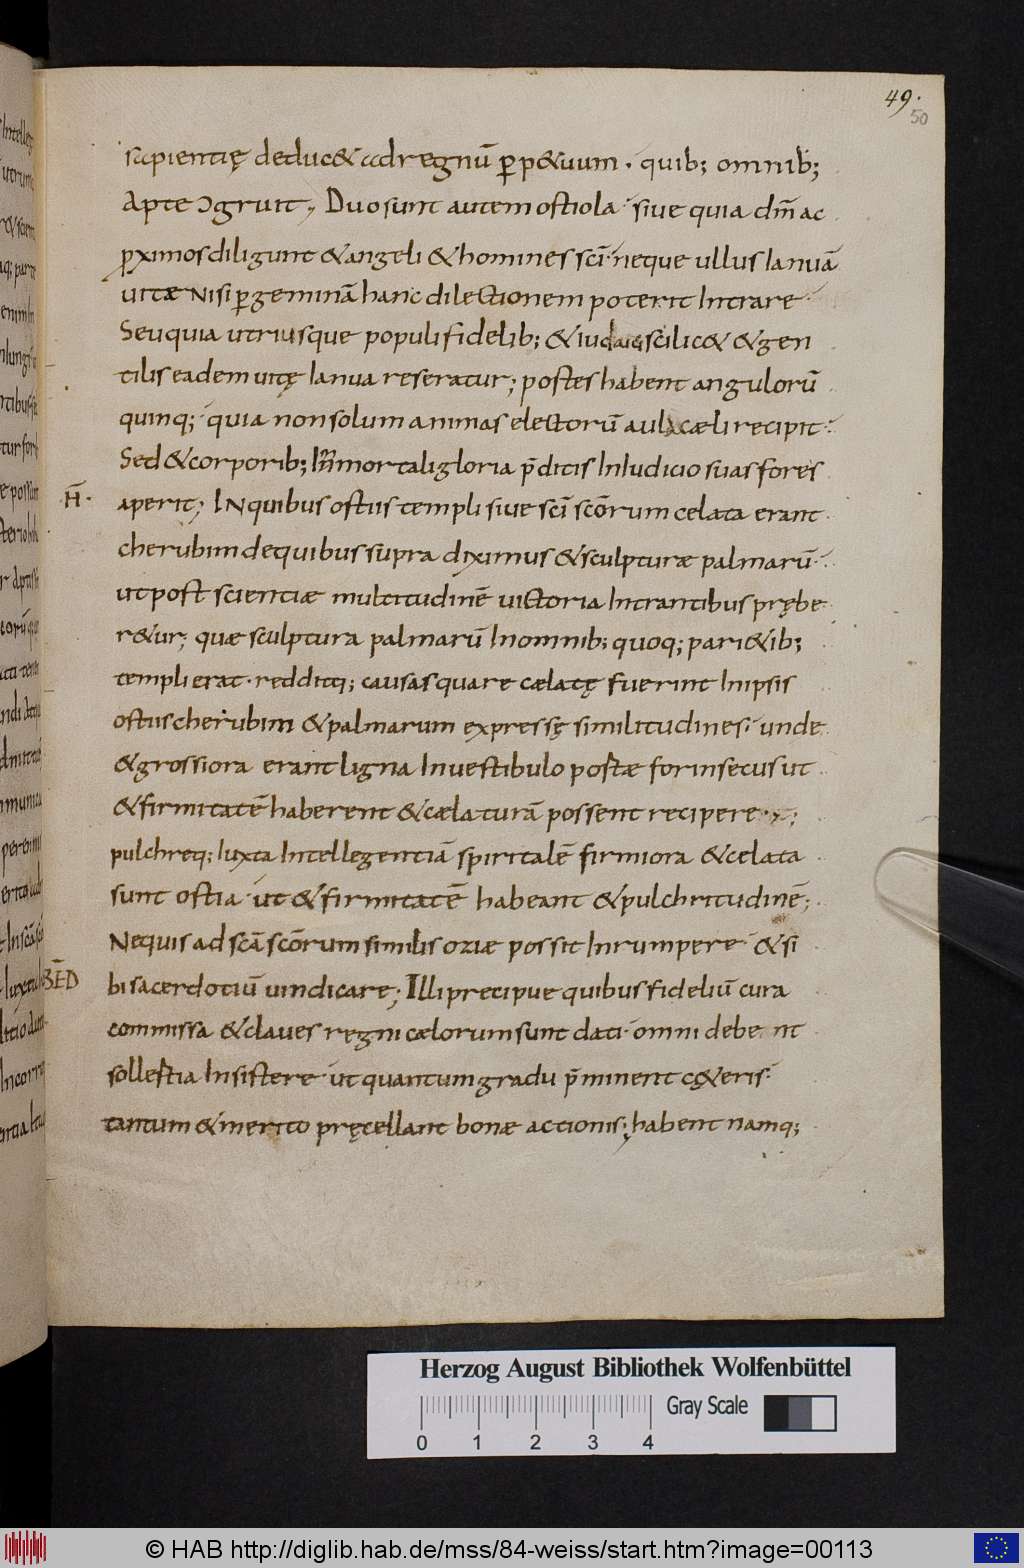 49.
50
sapientię deduc& ad regnū ꝑp&uum · quib; omnib;
Apte ɔgruit, Duo sunt autem ostiola · siue quia dm̄ ac
ꝓximos diligunt & angeli & homines sc̄i · neque ullus Ianuā
uitæ Nisi ꝑ geminā hanc dilectionem poterit Intrare ·
Seu quia utriusque populi fidelib; & iudaicis scilic& & gen
tilis eadem uitę Ianua reseratur; postes habent angulorū
quinq; · quia non solum animas electorū aula cæli recipit ·
Sed & corporib; Inmortali gloria p̄ditis In Iudicio suas fores
H̄ ·
aperit; INquibus ostiis templi siue sc̄i sc̄orum celata erant
cherubim de quibus supra diximus & sculpturæ palmarū ·
ut post scientiæ multitudinē uictoria Intrantibus prębe
r&ur; quæ sculptura palmarū In omnib; quoq; pari&ib;
templi erat · redditq; causas quare cælatę fuerint In ipsis
ostiis cherubim & palmarum expressę similitudines · unde
& grossiora erant ligna In uestibulo postæ forinsecus ut
& firmitatē haberent & cælaturā possent recipere ·
pulchreq; Iuxta Intellegentiā spiritalē firmiora & celata
sunt ostia · ut & firmitatē habeant & pulchritudinē;
Nequis ad scā sc̄orum similis oziæ possit Inrumpere & si
BĒD
bi sacerdotiū uindicare; Illi precipue quibus fideliū cura
commissa & claues regni cælorum sunt dati · omni debe nt
sollestia Insistere · ut quantum gradu p̄minent c&eris ·
tantum & merito pręcellant bonæ actionis; habent namq;
Herzog August Bibliothek Wolfenbüttel
Gray Scale
0 1 2 3 4
© HAB http://diglib.hab.de/mss/84-weiss/start.htm?image=00113